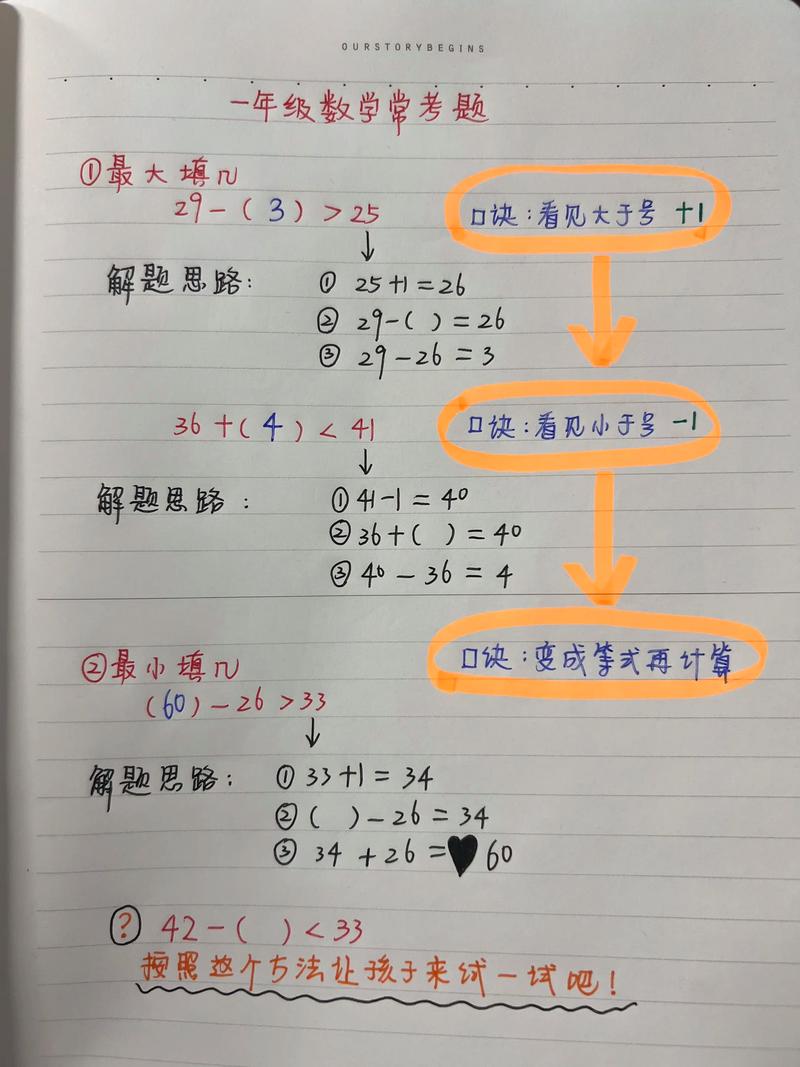 OURSTORYBEGINS
一年级数学常考题
①最大填几
29-(3)>25
口诀:看见大于号 +1
↓
解题思路: ① 25+1=26
② 29-( )=26
③ 29-26=3
36+(4)<41
口诀:看见小于号 -1
↓
解题思路: ①41-1=40
②36+( )=40
③40-36=4
口诀:变成等式再计算
②最小填几
(60)-26>33
↓
解题思路: ①33+1=34
②( )-26=34
③ 34+26=♥60
? 42-( )<33
按照这个方法让孩子来试一试吧!